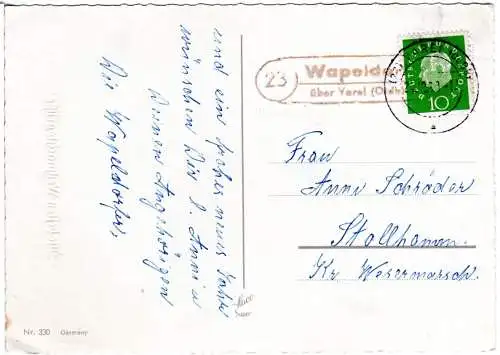 und ein frohes neues Jahr
wünschen Dir l. Anni u
Deinen Angehörigen
Die Wapeldorfer.
23
Wapeldo
über Varel (Oldb)
DEUTSCHE BUNDESPOST
10
a
Frau
Anni Schröder
Stollhamm.
Kr. Wesermarsch.
Nr. 330 Germany